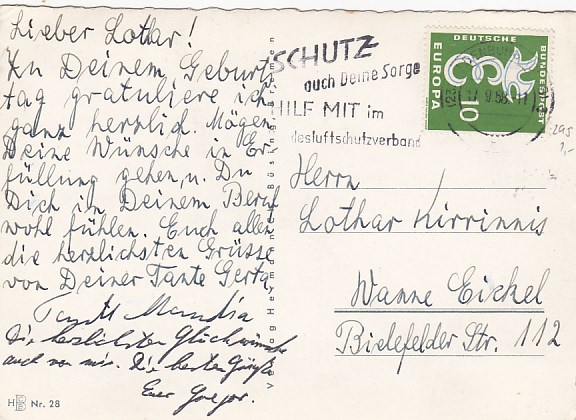 Lieber Lothar!
Zu Deinem Geburts
tag gratuliere ich
ganz herzlich. Mögen
Deine Wünsche in Er-
füllung gehen, u. Du
Dich in Deinem Beruf
wohl fühlen. Euch allen
die herzlichsten Grüsse
von Deiner Tante Gerta
Die herzlichsten Glückwünsche
auch von mir. Die besten Grüße
Euer
HB Nr. 28
SCHUTZ
auch Deine Sorge
HILF MIT im
desluftschutzverband
DEUTSCHE
BUNDESPOST
EUROPA
10
295
1,-
Herrn
Lothar Kirrinnis
Wanne Eickel
Bielefelder Str. 112